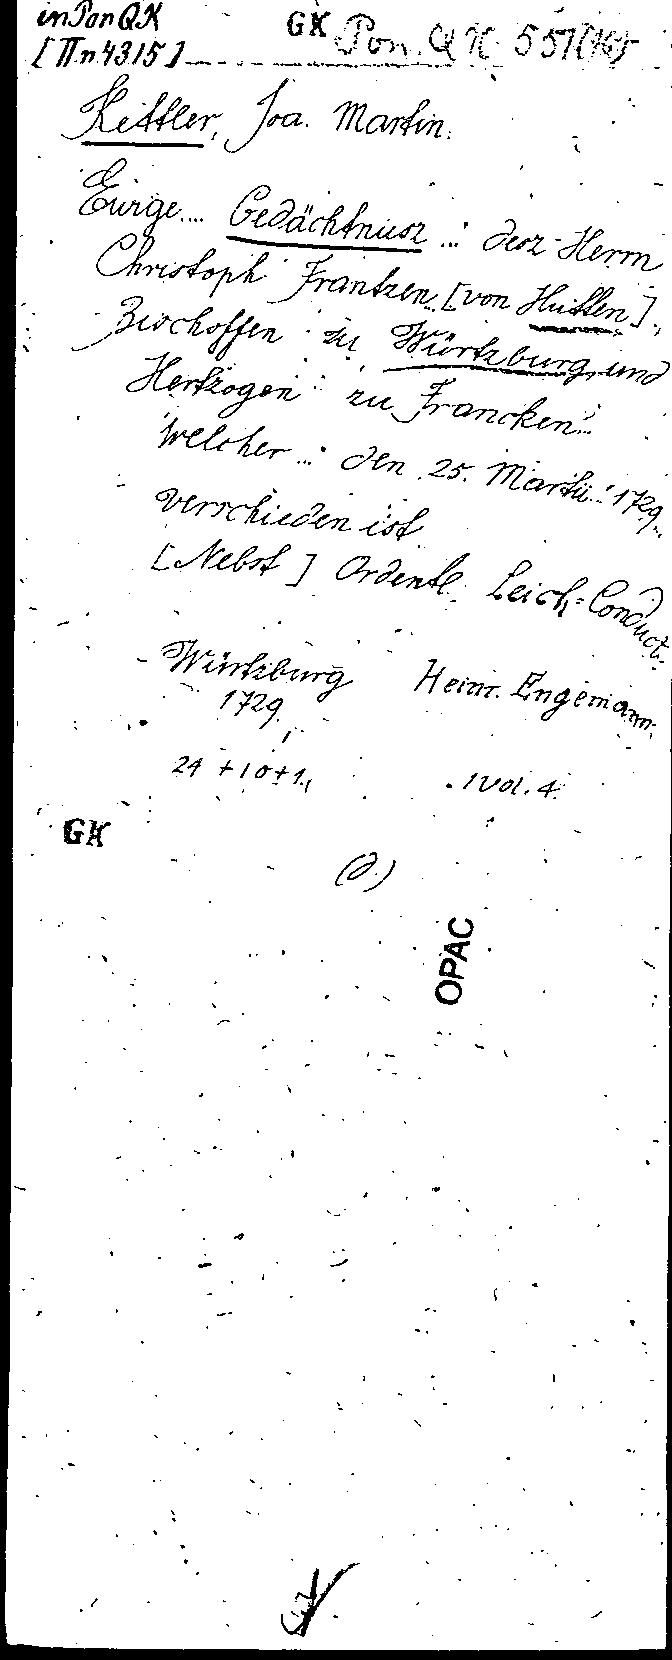 in Pon QK
GK Pon. QK 557(16)
[IIn 4315]
Kettler, Joa. Martin.
Ewige... Gedächtnusz ...: desz Herrn
Christoph Frantzen [von Hutten],
Bischoffen zu Würtzburg und
Hertzogen zu Francken...
welcher ...: den 25. Martii... 1729...
verschieden ist
[Nebst] Ordentl. Leich-Conduct..
Würtzburg Heinr. Engemann.
1729
24 + 10 + 1., 1 vol. 4.
GK
(d.)
OPAC